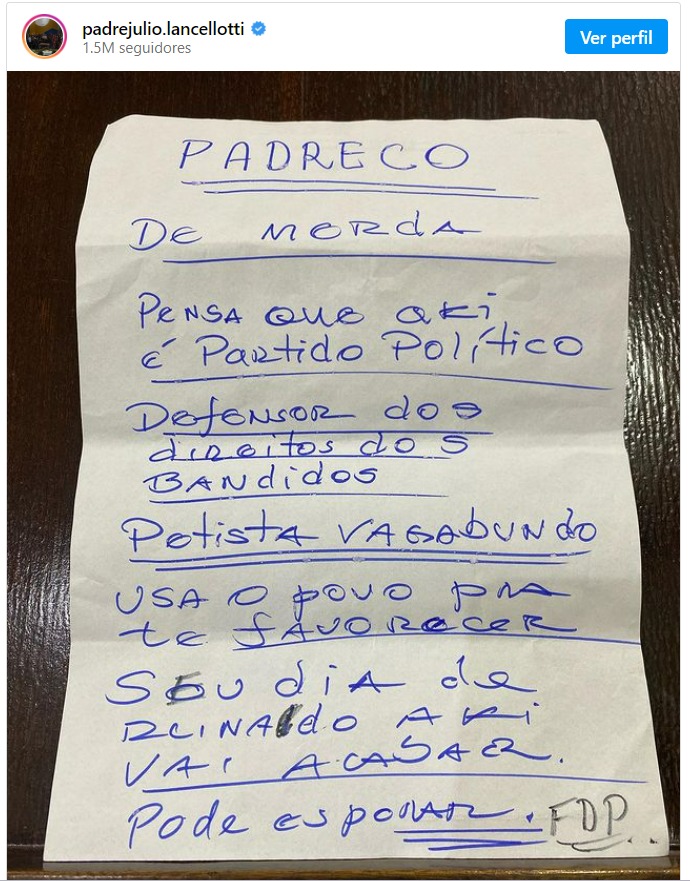 padrejulio.lancellotti
1.5M seguidores
Ver perfil
PADRECO
DE MERdA
PENSA QUE aki
é Partido Político
DefENSOR dos
direitos dos
BANdidos
Petista VAGAbUNdo
USA O povo pRA
te fAVORecER
SEU diA de
REINAldo AKi
VAi ACAbAR.
Pode espeRAR. FDP...